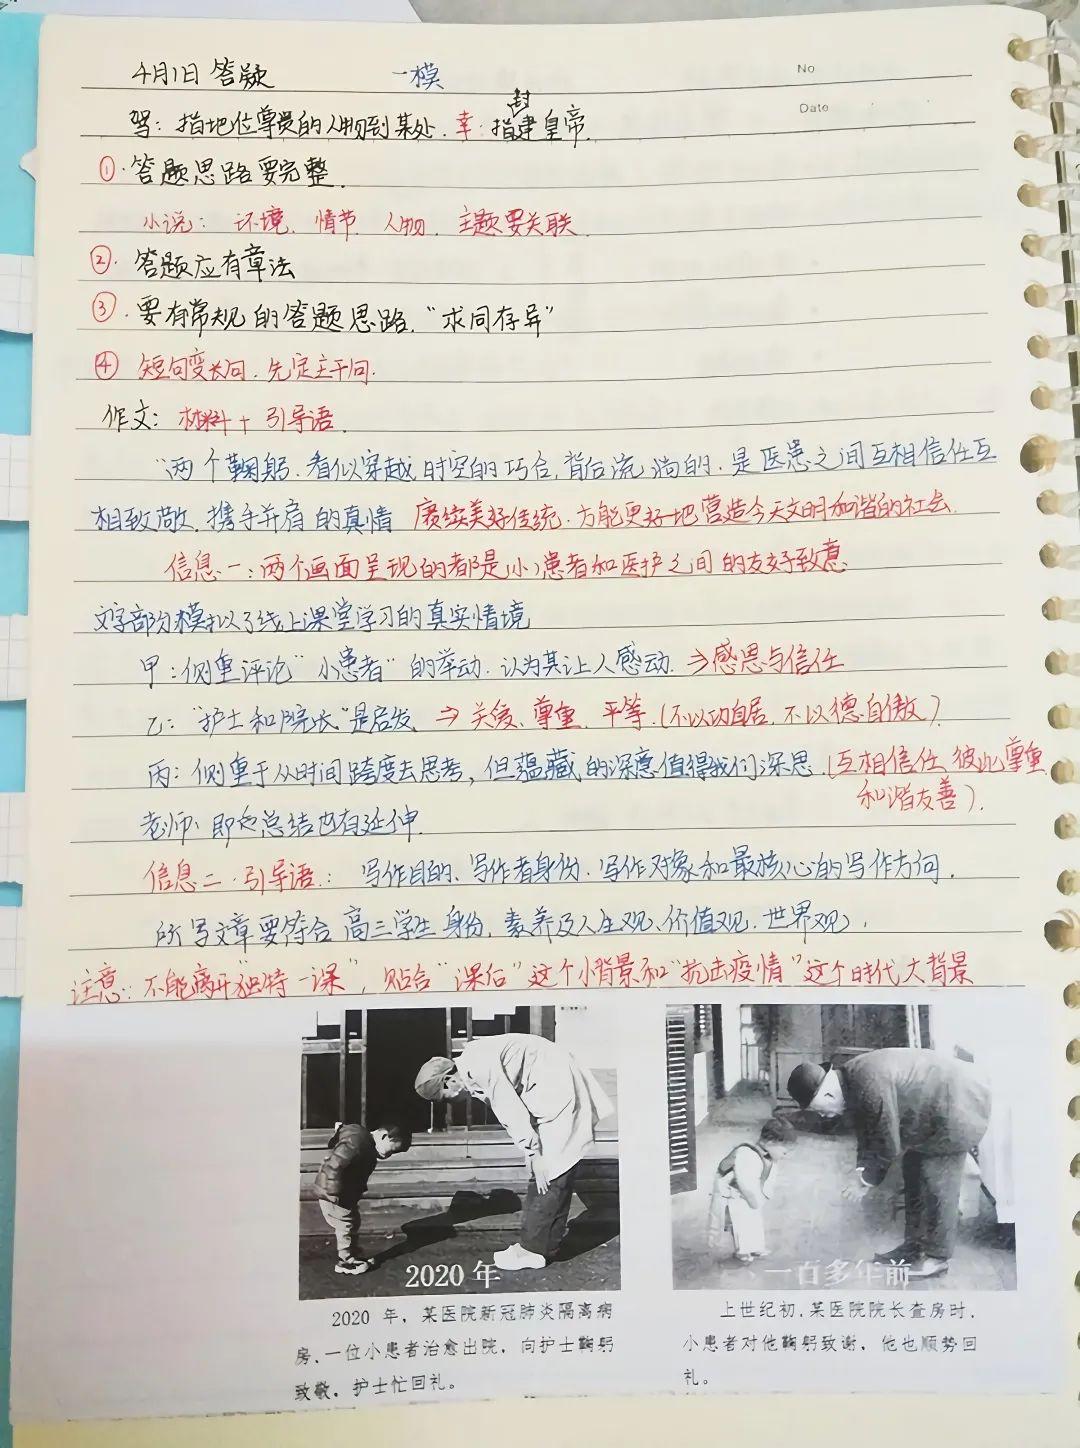 4月1日 答疑 一模
No
Date
驾：指地位尊贵的人物到某处．幸：指封建皇帝．
①．答题思路要完整．
小说：环境、情节、人物．主题要关联．
②．答题应有章法
③．要有常规的答题思路．“求同存异”
④ 短句变长句．先定主干句．
作文：材料＋引导语．
“两个鞠躬．看似穿越时空的巧合，背后流淌的．是医患之间互相信任互
相致敬、携手并肩的真情 赓续美好传统．方能更好地营造今天文明和谐的社会．
信息一：两个画面呈现的都是（小）患者和医护之间的友好致意
文字部分模拟了线上课堂学习的真实情境
甲：侧重评论“小患者”的举动．认为其让人感动．⇒感恩与信任
乙：“护士和院长”是启发 ⇒ 关爱、尊重、平等．（不以功自居，不以德自傲）．
丙：侧重于从时间跨度去思考，但蕴藏的深意值得我们深思．（互相信任、彼此尊重
和谐友善）．
老师：即也总结也有延伸．
信息二．引导语：写作目的、写作者身份、写作对象和最核心的写作方向．
所写文章要符合高三学生身份，素养及人生观、价值观．世界观，
注意：不能离开“独特一课”，贴合“课后”这个小背景和“抗击疫情”这个时代大背景
2020 年
一百多年前
2020 年，某医院新冠肺炎隔离病
房，一位小患者治愈出院，向护士鞠躬
致敬，护士忙回礼。
上世纪初，某医院院长查房时，
小患者对他鞠躬致谢，他也顺势回
礼。